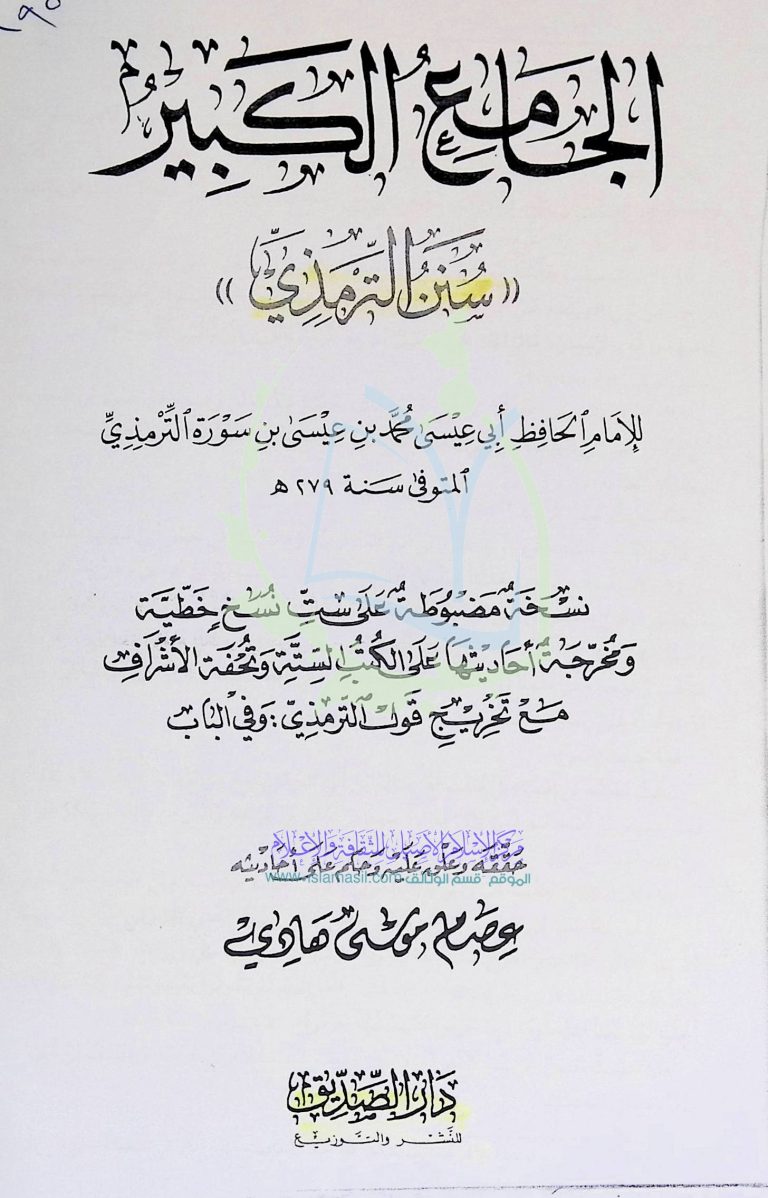 الجَامِعُ الكَبِيْرُ
((سُنَنُ التِّرْمِذِيِّ))
لِلإِمَامِ الحَافِظِ أَبِي عِيْسَى مُحَمَّد بنِ عِيْسَى بنِ سَوْرَة التِّرْمِذِيِّ
المتوفى سَنة ٢٧٩ ه
نسْخَةٌ مَضبُوطَةٌ عَلَى سِتِّ نُسَخٍ خَطِّيَّة
وَمُخَرَّجَةٌ أَحَاديثُهَا عَلَى الكُتُبِ السِتَّةِ وَتُحْفَة الأَشْرَافِ
مَعْ تَخْرِيْجِ قَولِ التِّرْمذِيّ: وَفي البَاب
مركز الإسلام الأصيل للثقافة والإعلام
حَقَّقَهُ وَعَلَّقَ عَلَيْه وَحَكَمَ عَلَى أَحَاديثِه
الموقع قسم الوثائق www.islamasil.com
عِصَام مُوسَى هَادِي
دَارُ الصِّدِّيق
للنَّشر والتَّوزيع